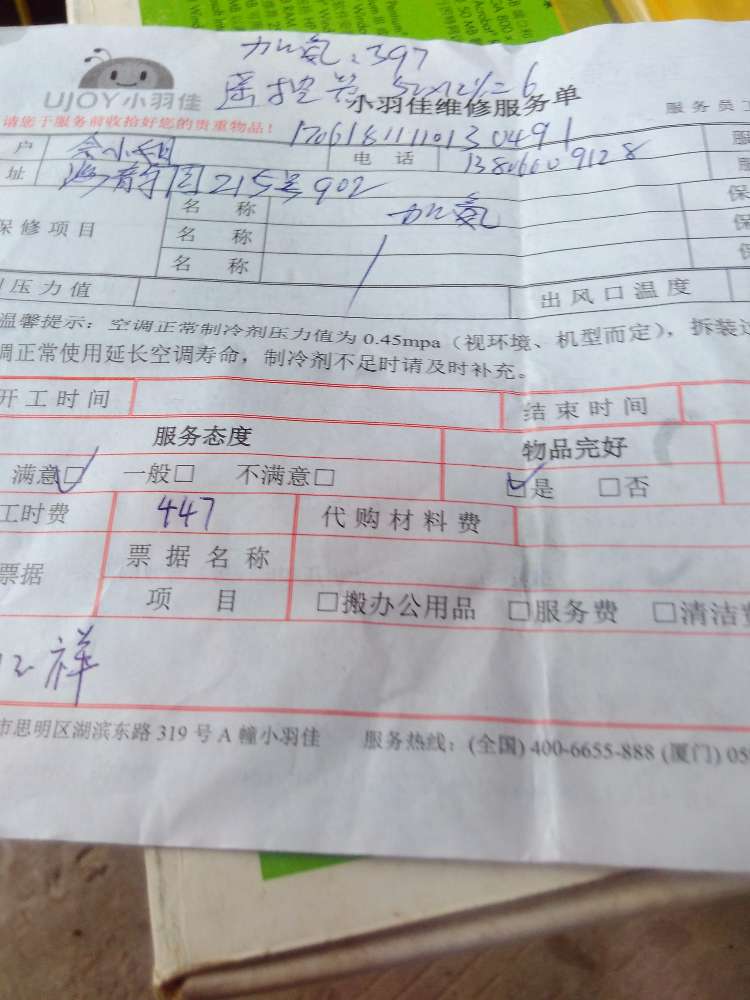 加氟:397
遥控器 50×12%=6
UJOY小羽佳
小羽佳维修服务单
服务员工
请您于服务前收拾好您的贵重物品!
17061811110130491
户 余小姐 电话 13806609128
址 215号902
保修项目 名称 加氟
名称
名称
压力值 出风口温度
温馨提示:空调正常制冷剂压力值为 0.45mpa(视环境、机型而定),拆装过
调正常使用延长空调寿命,制冷剂不足时请及时补充。
开工时间 结束时间
服务态度 物品完好
满意□ 一般□ 不满意□ □是 □否
工时费 447 代购材料费
票据 票据名称
项目 □搬办公用品 □服务费 □清洁费
祥
市思明区湖滨东路 319 号 A 幢小羽佳 服务热线:(全国) 400-6655-888 (厦门) 05